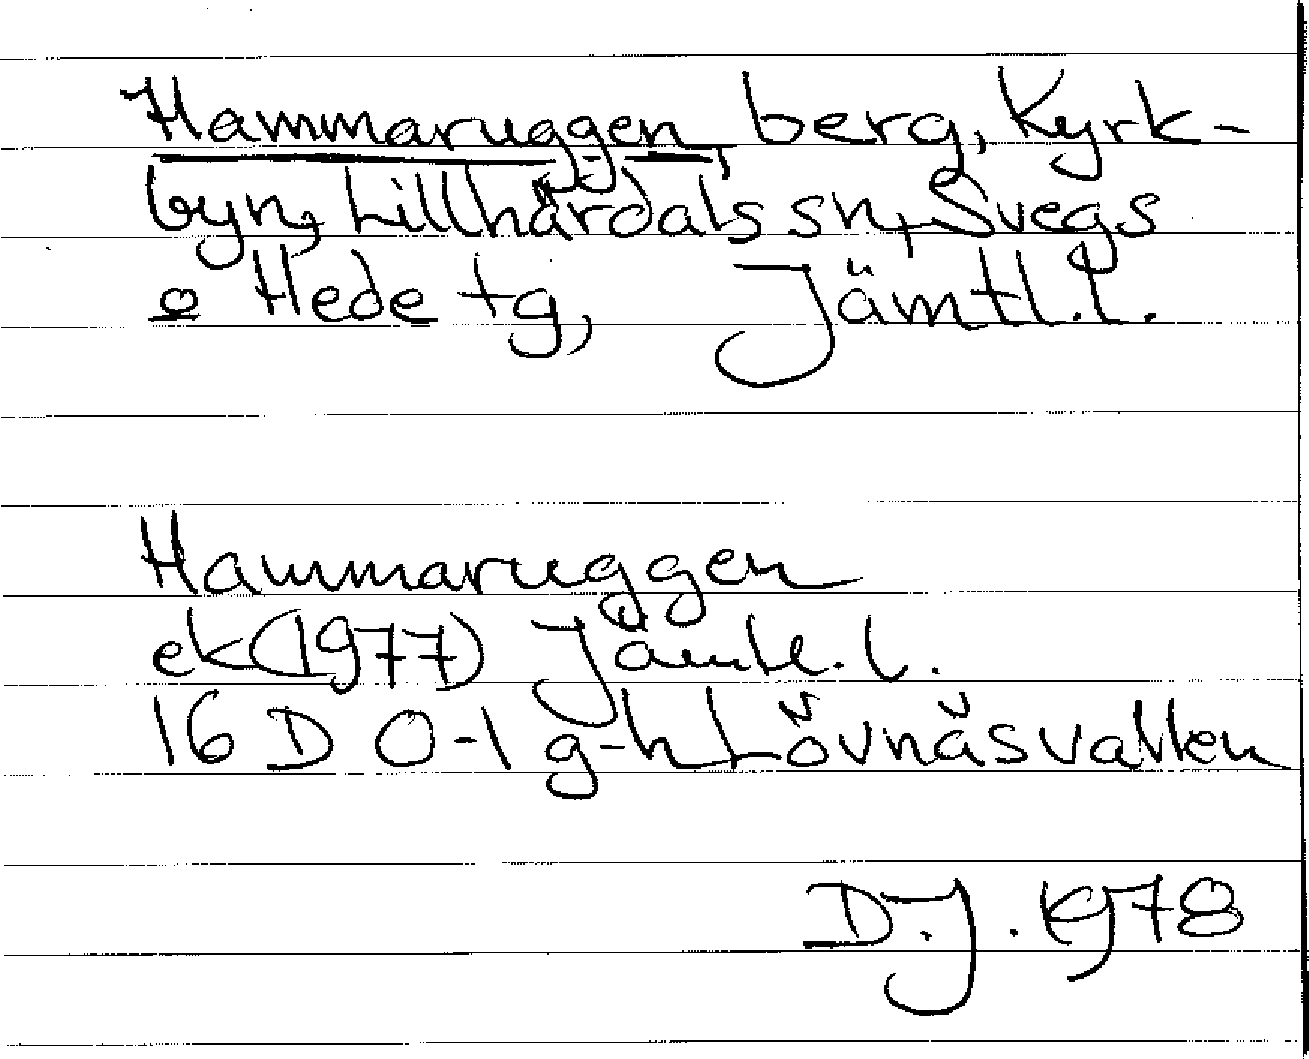 Hammaruggen, berg, Kyrk-
byn, Lillhärdals sn, Svegs
o Hede tg, Jämtl.l.
Hammaruggen
ek(1977) Jämtl.l.
16 D 0-1 g-h Lövnäsvallen
D.J. 1978